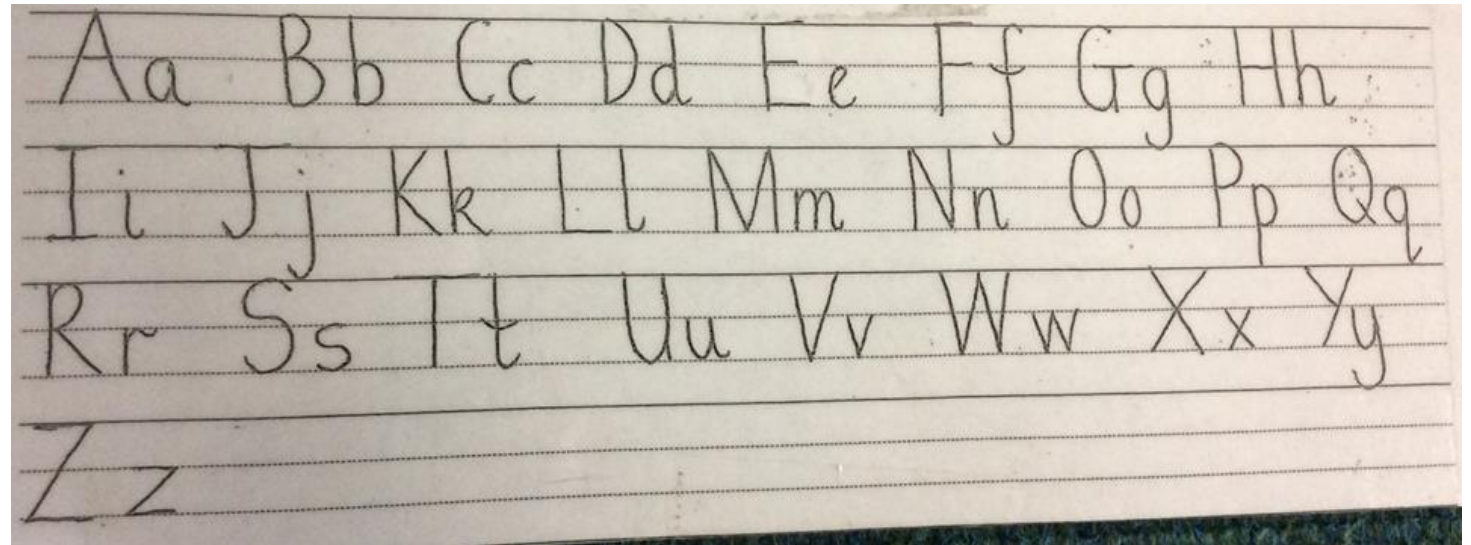 Aa Bb Cc Dd Ee Ff Gg Hh
Ii Jj Kk Ll Mm Nn Oo Pp Qq
Rr Ss Tt Uu Vv Ww Xx Yy
Zz